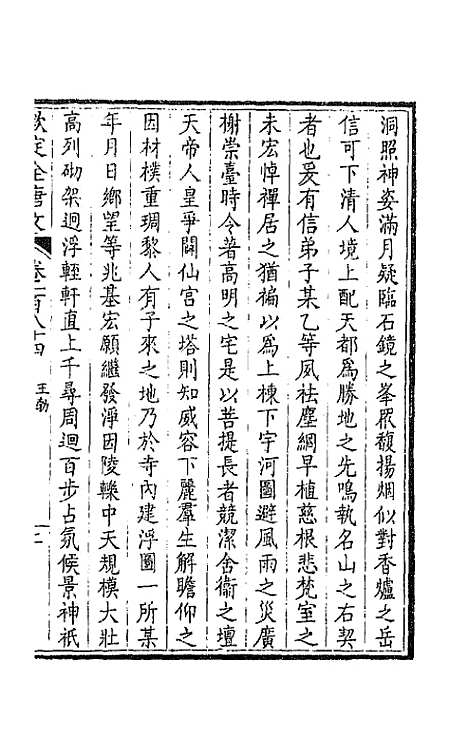 洞照神姿滿月疑臨石鏡之峯眾馥揚烟似對香爐之岳
信可下清人境上配天都為勝地之先鳴執名山之右契
者也爰有信弟子某乙等夙祛塵網早植慈根悲梵室之
未宏悼禪居之猶褊以為上棟下宇河圖避風雨之災廣
榭崇臺時令著高明之宅是以菩提長者競潔舍衞之壇
天帝人皇爭闢仙宫之塔則知威容下麗羣生解瞻仰之
因材樸重琱黎人有子來之地乃於寺內建浮圖一所某
年月日鄉望等兆基宏願繼發淨因陵轢中天規模大壯
高列砌架迴浮輊軒直上千尋周迴百步占氛候景神祇
欽定全唐文 卷一百八十四 王勃